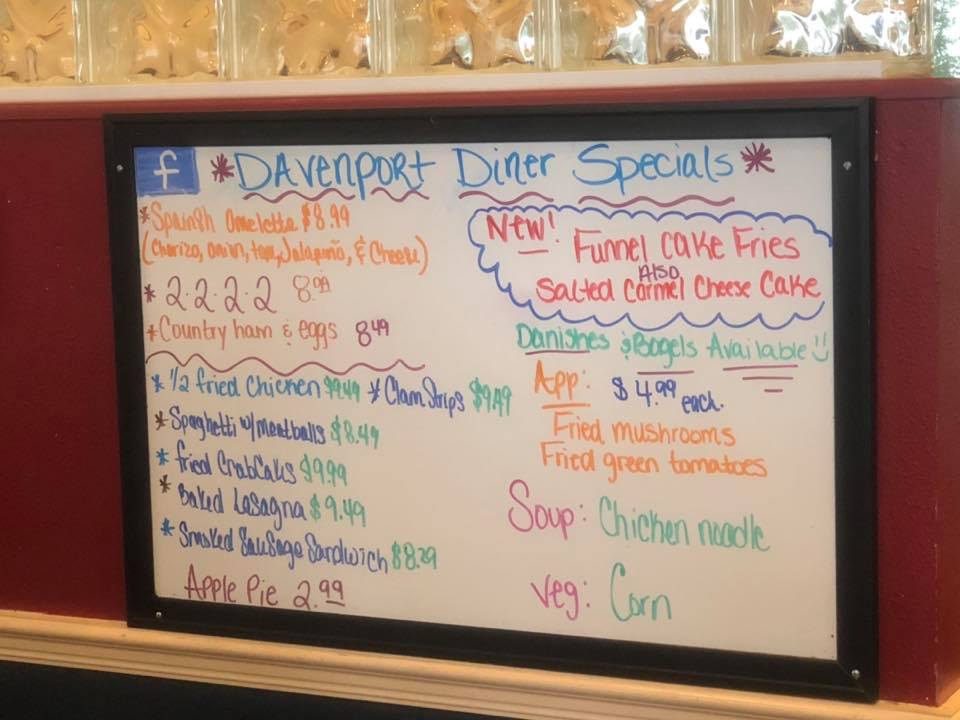 f *Davenport Diner Specials*
*Spanish Omelette $8.99
(Chorizo, onion, tom, Jalapeño, & Cheese)
* 2.2.2.2 8.99
*Country ham & eggs 8.49
* 1/2 fried Chicken $9.49 *Clam Strips $9.49
*Spaghetti w/meatballs $8.49
* fried CrabCakes $9.99
* Baked Lasagna $9.49
* Smoked Sausage Sandwich $8.29
Apple Pie 2.99
New! Funnel Cake Fries
Also
Salted Carmel Cheese Cake
Danishes & Bagels Available
App: $4.99 each.
Fried mushrooms
Fried green tomatoes
Soup: Chicken noodle
Veg: Corn